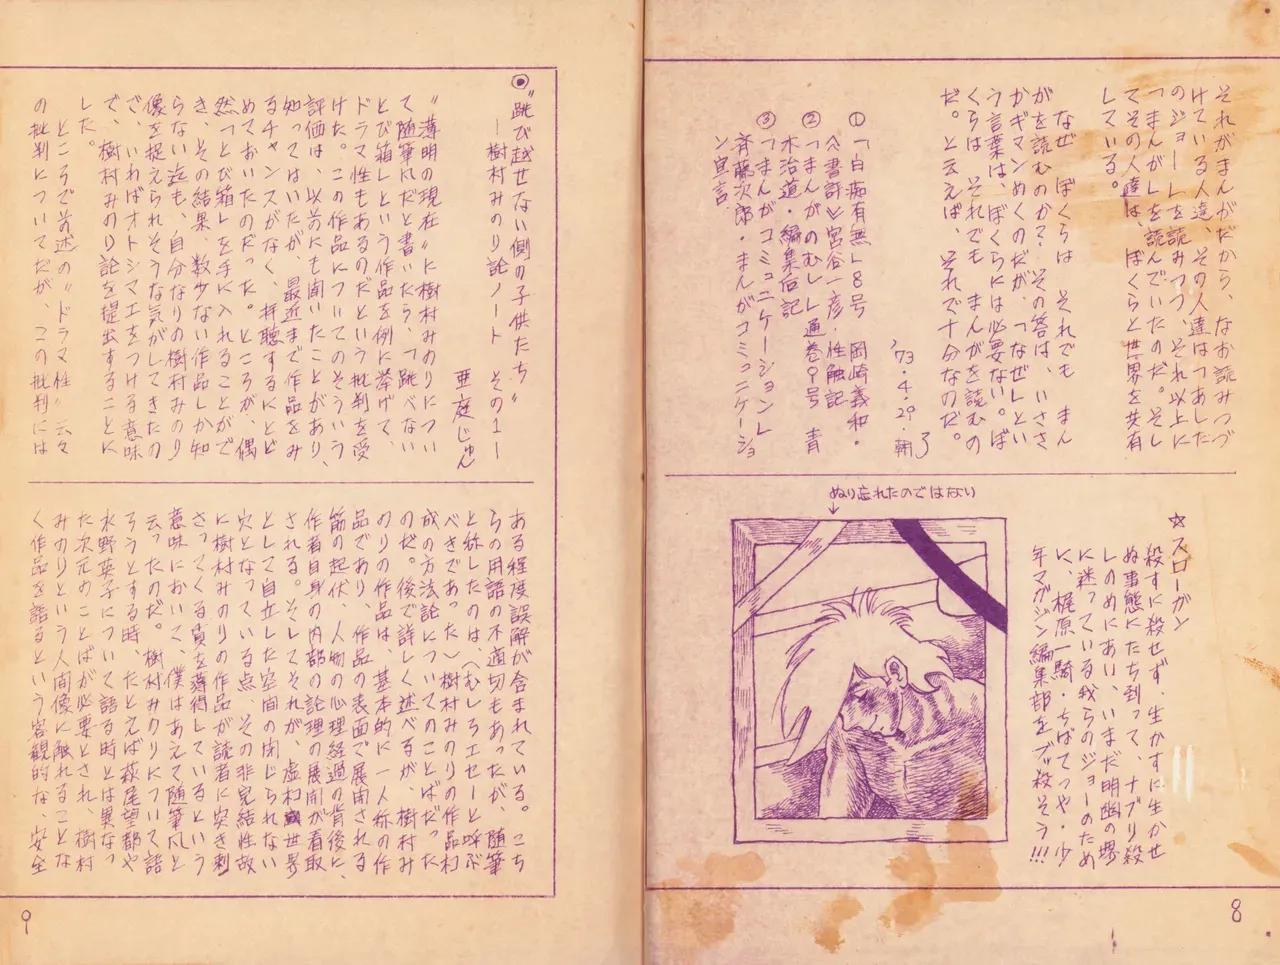 それがまんがだから、なお読みつづ
けている人達、その人達は「あした
のジョー」を読みつつ、それ以上に
「まんが」を読んでいたのだ。そし
てその人達は、ぼくらと世界を共有
している。
なぜ ぼくらは それでも まん
がを読むのか？その答は、いささ
かギマンめくのだが、「なぜ」とい
う言葉は、ぼくらには必要ない。ぼ
くらは、それでも まんがを読むの
だ。と云えば、それで十分なのだ。
了
'73・4・29・朝
① 「白痴有無」8号 岡崎義和・
≪書評≫宮谷一彦・性触記
② 「まんがのむし」通巻9号 青
木治道・編集后記
③ 「まんがコミュニケーション」
斉藤次郎・まんがコミュニケーショ
ン宣言.
☆スローガン
殺すに殺せず、生かすに生かせ
ぬ事態にたち到って、ナブリ殺
しのめにあい、いまだ明幽の堺
に迷っている我らのジョーのため
に、梶原一騎・ちばてつや・少
年マガジン編集部をブッ殺そう!!!
ぬり忘れたのではない
8
◉〝跳び越せない側の子供たち〟
ー樹村みのり論ノート その1ー
亜庭じゅん
〝薄明の現在〟に樹村みのりについ
て随筆風だと書いたら、「跳べない
とび箱」という作品を例に挙げて、
ドラマ性もあるのだという批判を受
けた。この作品についてのそういう
評価は、以前にも聞いたことがあり、
知ってはいたが、最近まで作品をみ
るチャンスがなく、拝聴するにとど
めておいたのだった。ところが、偶
然「とび箱」を手に入れることがで
き、その結果、数少ない作品しか知
らない迄も、自分なりの樹村みのり
像を捉えられそうな気がしてきたの
で、いわばオトシマエをつける意味
で、樹村みのり論を提出することに
した。
ところで前述の〝ドラマ性〟云々
の批判についてだが、この批判には
ある程度誤解が含まれている。こち
らの用語の不適切もあったが、随筆
と称したのは、（むしろエセーと呼ぶ
べきであった）樹村みのりの作品構
成の方法論についてのことばだった
のだ。後で詳しく述べるが、樹村み
のりの作品は、基本的に一人称の作
品であり、作品の表面で展開される
筋の起伏、人物の心理経過の背後に、
作者自身の内部の論理の展開が看取
される。そしてそれが、虚構世界
として自立した空間の閉じられない
穴となっている点、その非完結性故
に樹村みのりの作品が読者に突き刺
さってくる質を獲得しているという
意味において、僕はあえて随筆風と
云ったのだ。樹村みのりについて語
ろうとする時、たとえば萩尾望都や
水野英子について語る時とは異なっ
た次元のことばが必要とされ、樹村
みのりという人間像に触れることな
く作品を語るという客観的な、安全
9